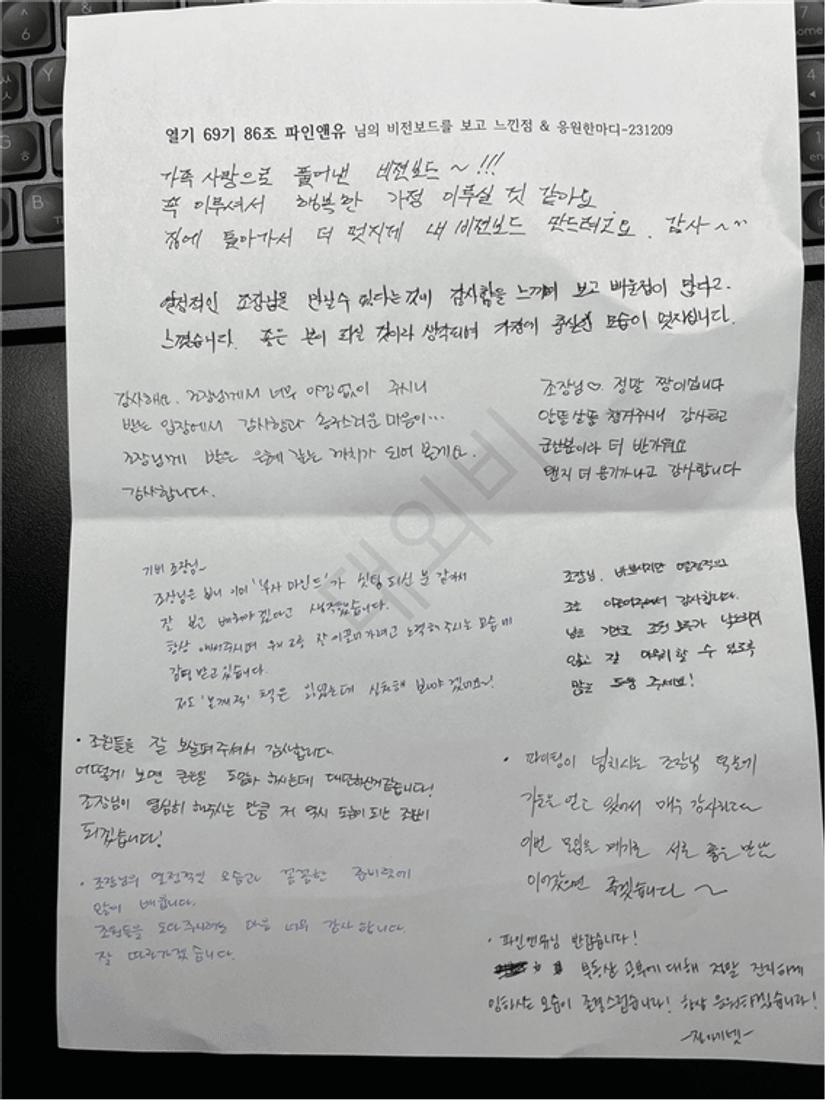 열기 69기 86조 파인앤유 님의 비전보드를 보고 느낀점 & 응원한마디-231209
가족 사랑으로 풀어낸 비전보드 ~ !!!
꼭 이루셔서 행복한 가정 이루실 것 같아요
집에 돌아가서 더 멋지게 내 비전보드 만드려고요. 감사~~
열정적인 조장님을 만날수 있다는것이 감사함을 느끼며 보고 배울점이 많다고.
느꼈습니다. 좋은 분이 되실 것이라 생각되며 가정에 충실한 모습이 멋지십니다.
감사해요. 조장님께서 너무 아낌없이 주시니
받는 입장에서 감사함과 송구스러운 마음이...
조장님께 받은 은혜 갚는 까치가 되어 볼게요.
감사합니다.
조장님♡ 정말 짱이십니다
알뜰살뜰 챙겨주시니 감사하고
군산분이라 더 반가워요
왠지 더 용기가나고 감사합니다
기버 조장님~
조장님은 보니 이미 '복사 마인드'가 셋팅 되신 분 같아서
잘 보고 배워야 겠다고 생각했습니다.
항상 애써주시며 우리 조를 잘 이끌어가려고 노력해 주시는 모습에
감명 받고 있습니다.
저도 '본깨적' 책은 읽었는데 실천해 보아야 겠네요~!
조장님. 바쁘시지만 열정적으로
조를 이끌어주셔서 감사합니다.
남은 기간도 조원 모두가 낙오하지
않고 잘 마무리 할 수 있도록
많은 도움 주세요!
• 조원들을 잘 보살펴주셔서 감사합니다.
어떻게 보면 큰일을 도맡아 하시는데 대단하신거같습니다!
조장님이 열심히 해주시는 만큼 저 역시 도움이 되는 조원이
되겠습니다!
• 조장님의 열정적인 모습과 꼼꼼한 준비력에
많이 배웁니다.
조원들을 도와주시려는 마음 너무 감사 합니다.
잘 따라가겠습니다.
• 파이팅이 넘치시는 조장님 덕분에
기운을 얻고 있어서 매우 감사하고~
이번 모임을 계기로 서로 좋은 만남
이어갔으면 좋겠습니다 ~
• 파인앤유님 반갑습니다!
부동산 공부에 대해 정말 진지하게
임하시는 모습이 존경스럽습니다! 항상 응원하겠습니다!
대외비